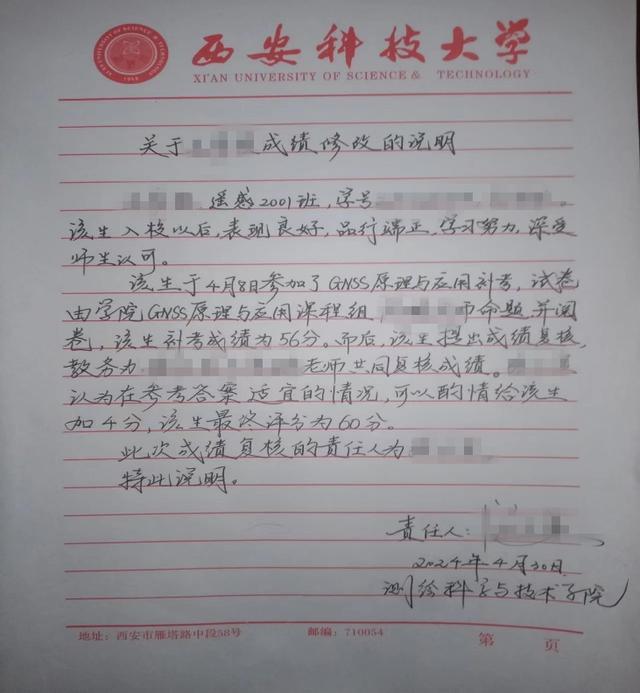 西安科技大学
XI'AN UNIVERSITY OF SCIENCE & TECHNOLOGY
关于成绩修改的说明
遥感2001班，学号
该生入校以后，表现良好，品行端正，学习努力，深受
师生认可。
该生于4月8日参加了GNSS原理与应用补考，试卷
由学院GNSS原理与应用课程组命题并阅
卷，该生补考成绩为56分。而后，该生提出成绩复核，
教务为老师共同复核成绩。
认为在参考答案适宜的情况，可以酌情给该生
加4分，该生最终评分为60分。
此次成绩复核的责任人为
特此说明。
责任人：
2024年4月30日
测绘科学与技术学院
地址：西安市雁塔路中段58号 邮编：710054 第 页